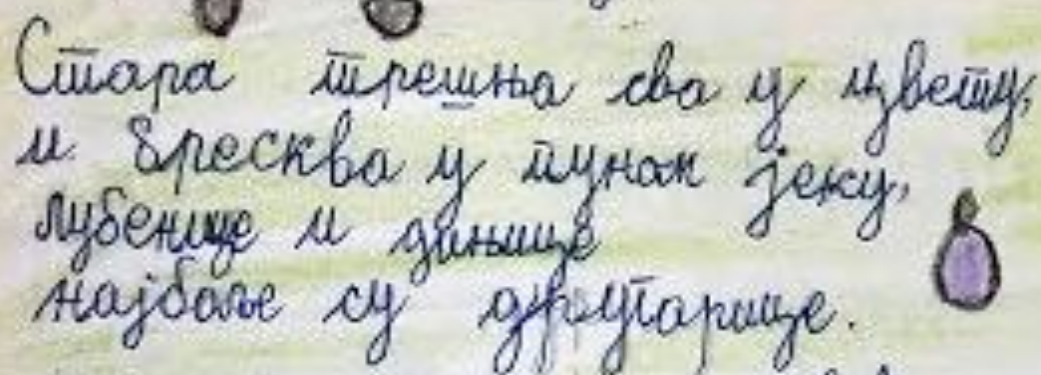 Стара трешња сва у цвету,
и бресква у пуном јеку,
лубенице и дињице
најбоље су другарице.